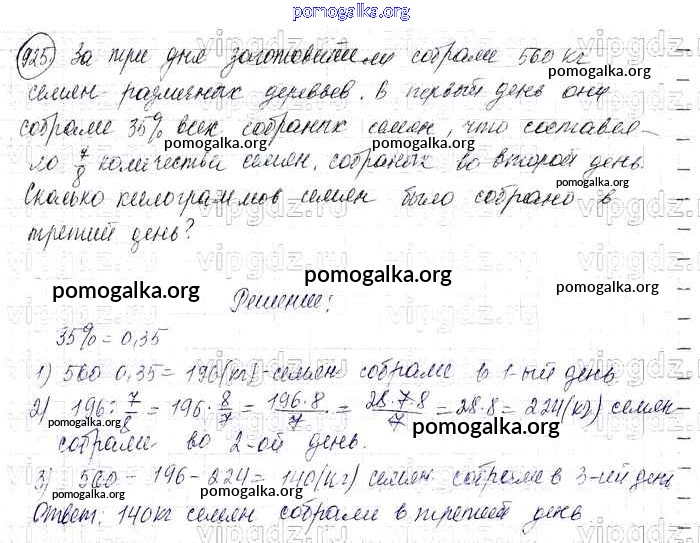 pomogalka.org
925) За три дня заготовители собрали 560 кг
pomogalka.org
семян различных деревьев. В первый день они
pomogalka.org
собрали 35% всех собраных семян, что составля-
ло 7/8 количества семян, собраных во второй день.
pomogalka.org
Сколько килограммов семян было собрано в
третий день?
vipgdz.ru
pomogalka.org
pomogalka.org pomogalka.org
Решение:
35% = 0,35
1) 560 0,35 = 196 (кг) - семян собрали в 1-ый день
pomogalka.org
2) 196 : 7/8 = 196 · 8/7 = 196·8/7 = 28·7·8/7 = 28·8 = 224 (кг) семян
pomogalka.org
собрали во 2-ой день.
3) 560 - 196 - 224 = 140 (кг) семян собрали в 3-ий день
pomogalka.org pomogalka.org
Ответ: 140 кг семян собрали в третий день